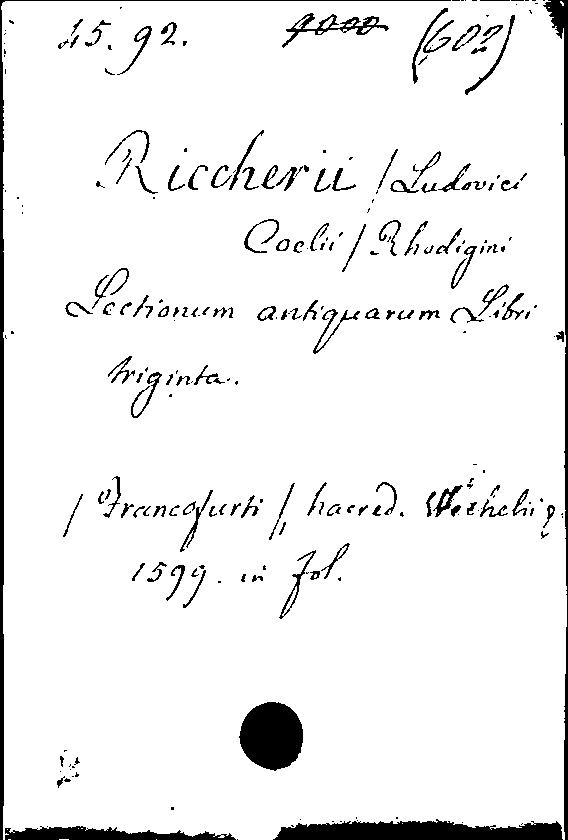 45. 92. 9000 (602)
Riccherii / Ludovici
Coelii / Rhodigini
Lectionum antiquarum Libri
triginta.
/ Francofurti /, haered. Wechelii
1599. in fol.